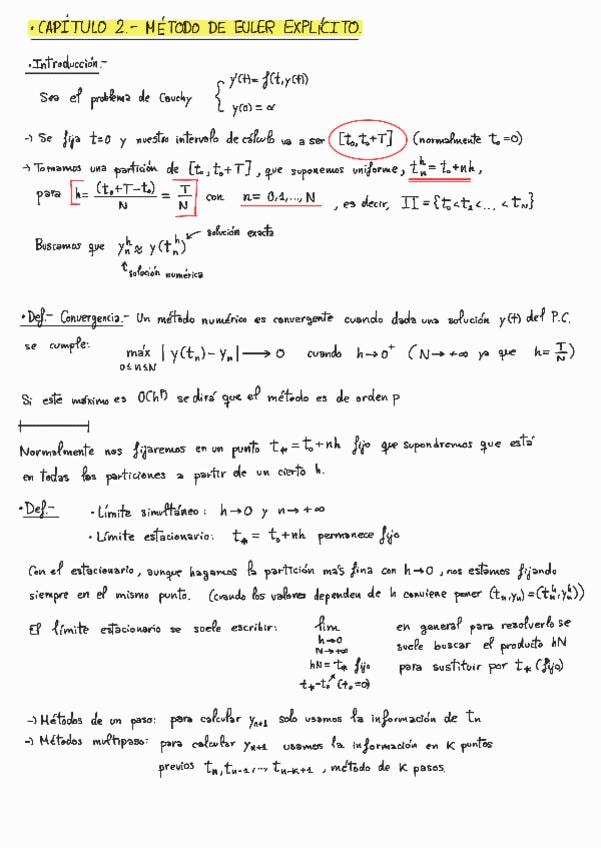 · CAPÍTULO 2.- MÉTODO DE EULER EXPLÍCITO.
· Introducción.-
Sea el problema de Cauchy { y'(t) = f(t, y(t))
y(0) = α
→ Se fija t=0 y nuestro intervalo de cálculo va a ser [t₀, t₀+T] (normalmente t₀=0)
→ Tomamos una partición de [t₀, t₀+T], que suponemos uniforme, tₙʰ = t₀+nh,
para h = (t₀+T-t₀)/N = T/N con n = 0,1,..., N , es decir, Π = {t₀<t₁<... < t_N}
Buscamos que yₙʰ ≈ y(tₙʰ) ← solución exacta
↑ solución numérica
· Def.- Convergencia.- Un método numérico es convergente cuando dada una solución y(t) del P.C.
se cumple: máx | y(tₙ) - yₙ | → 0 cuando h→0⁺ (N→+∞ ya que h = T/N)
0≤n≤N
Si este máximo es O(hᵖ) se dirá que el método es de orden p
Normalmente nos fijaremos en un punto t* = t₀+nh fijo que supondremos que está
en todas las particiones a partir de un cierto h.
· Def.- · Límite simultáneo: h→0 y n→+∞
· Límite estacionario: t* = t₀+nh permanece fijo
Con el estacionario, aunque hagamos la partición más fina con h→0, nos estamos fijando
siempre en el mismo punto. (cuando los valores dependen de h conviene poner (tₙ,yₙ)=(tₙʰ,yₙʰ))
El límite estacionario se suele escribir: lim en general para resolverlo se
h→0
N→+∞ suele buscar el producto hN
hN = t* fijo para sustituir por t* (fijo)
t*-t₀ (t₀=0)
→ Métodos de un paso: para calcular yₙ₊₁ solo usamos la información de tₙ
→ Métodos multipaso: para calcular yₙ₊₁ usamos la información en K puntos
previos tₙ, tₙ₋₁, ..., tₙ₋ₖ₊₁ , método de K pasos.